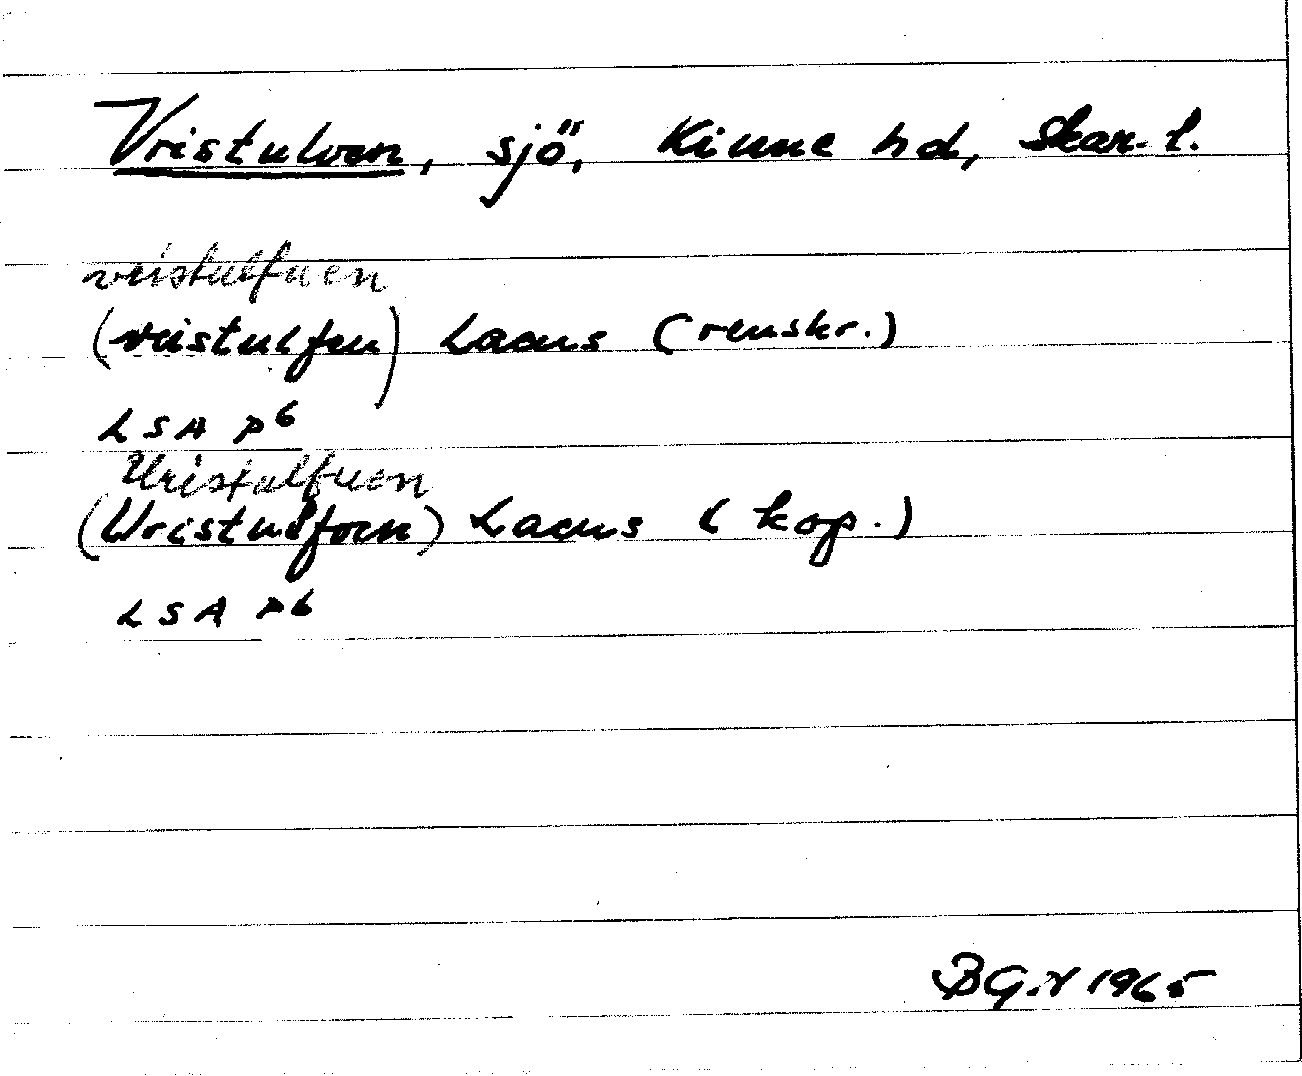 Vristulven, sjö, Kinne hd, Skar. l.
vristulfuen
(vristulfen) Lacus (renskr.)
LSA p 6
Uristulfuen
(Uristulfoen) Lacus (kop.)
LSA p 6
BG.r 1965